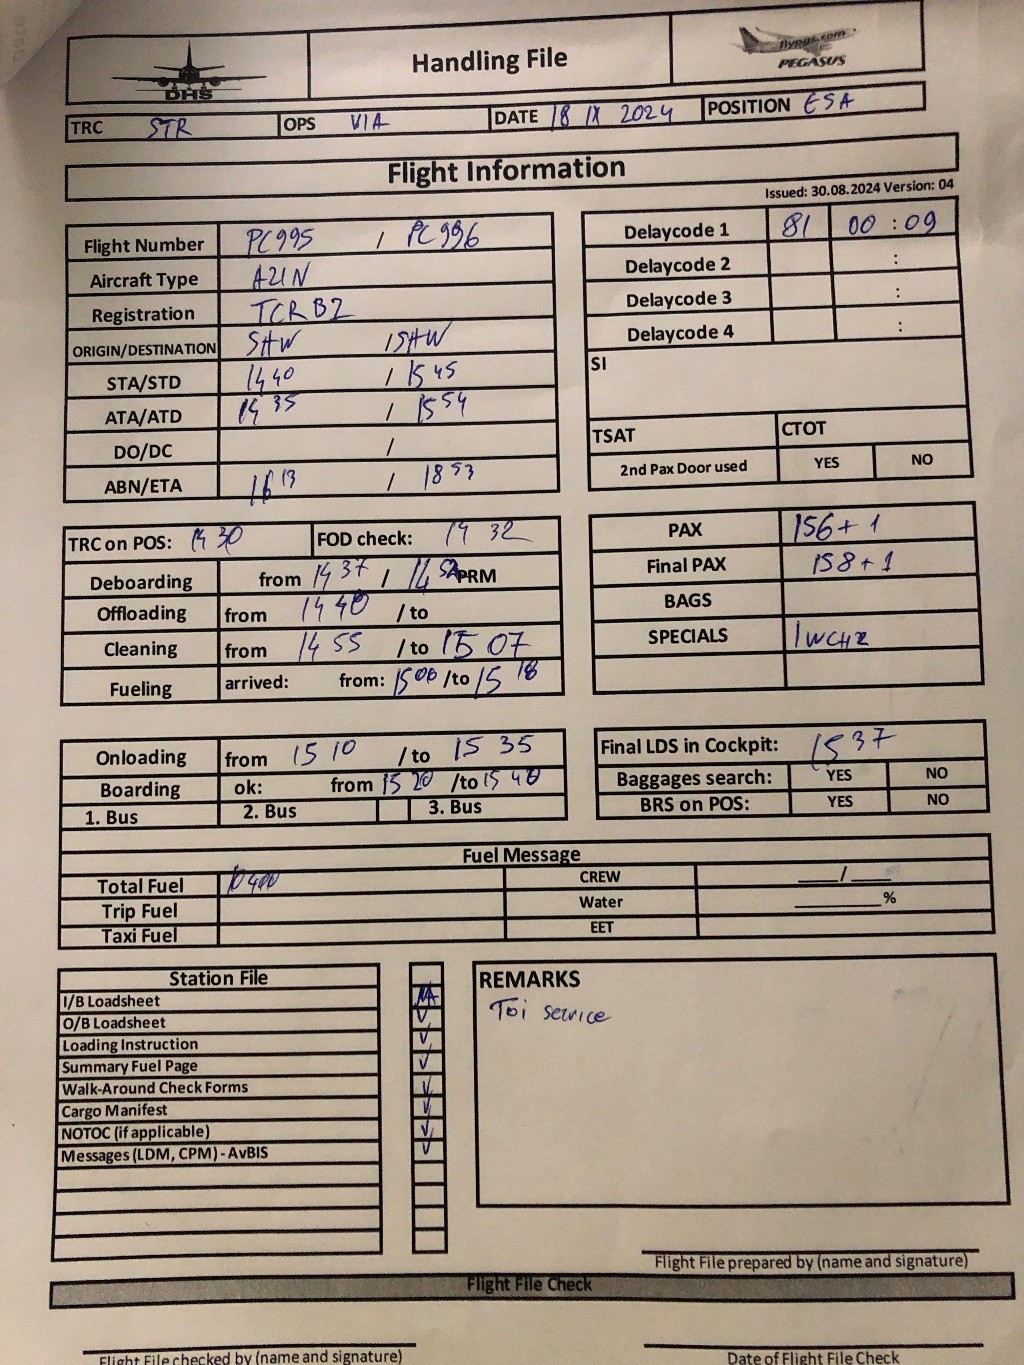 DHS
Handling File
flypgs.com
PEGASUS
TRC STR OPS VIA DATE 18 IX 2024 POSITION E5A
Flight Information
Issued: 30.08.2024 Version: 04
Flight Number PC995 / PC996
Aircraft Type A21N
Registration TCRBZ
ORIGIN/DESTINATION SAW / SAW
STA/STD 1440 / 1545
ATA/ATD 1435 / 1554
DO/DC /
ABN/ETA 1613 / 1853
Delaycode 1 81 00 : 09
Delaycode 2 :
Delaycode 3 :
Delaycode 4 :
SI
TSAT CTOT
2nd Pax Door used YES NO
TRC on POS: 14 30 FOD check: 14 32
Deboarding from 14 37 / 14 52 PRM
Offloading from 14 40 / to
Cleaning from 14 55 / to 15 07
Fueling arrived: from: 1500 /to 15 18
PAX 156+1
Final PAX 158+1
BAGS
SPECIALS 1WCHR
Onloading from 15 10 / to 15 35
Boarding ok: from 15 20 /to 15 40
1. Bus 2. Bus 3. Bus
Final LDS in Cockpit: 1537
Baggages search: YES NO
BRS on POS: YES NO
Fuel Message
Total Fuel 10400 CREW ____/____
Trip Fuel Water ________%
Taxi Fuel EET
Station File
I/B Loadsheet NA
O/B Loadsheet ✓
Loading Instruction ✓
Summary Fuel Page ✓
Walk-Around Check Forms ✓
Cargo Manifest ✓
NOTOC (if applicable) ✓
Messages (LDM, CPM) - AvBIS ✓
REMARKS
Toi service
Flight File prepared by (name and signature)
Flight File Check
Flight File checked by (name and signature) Date of Flight File Check